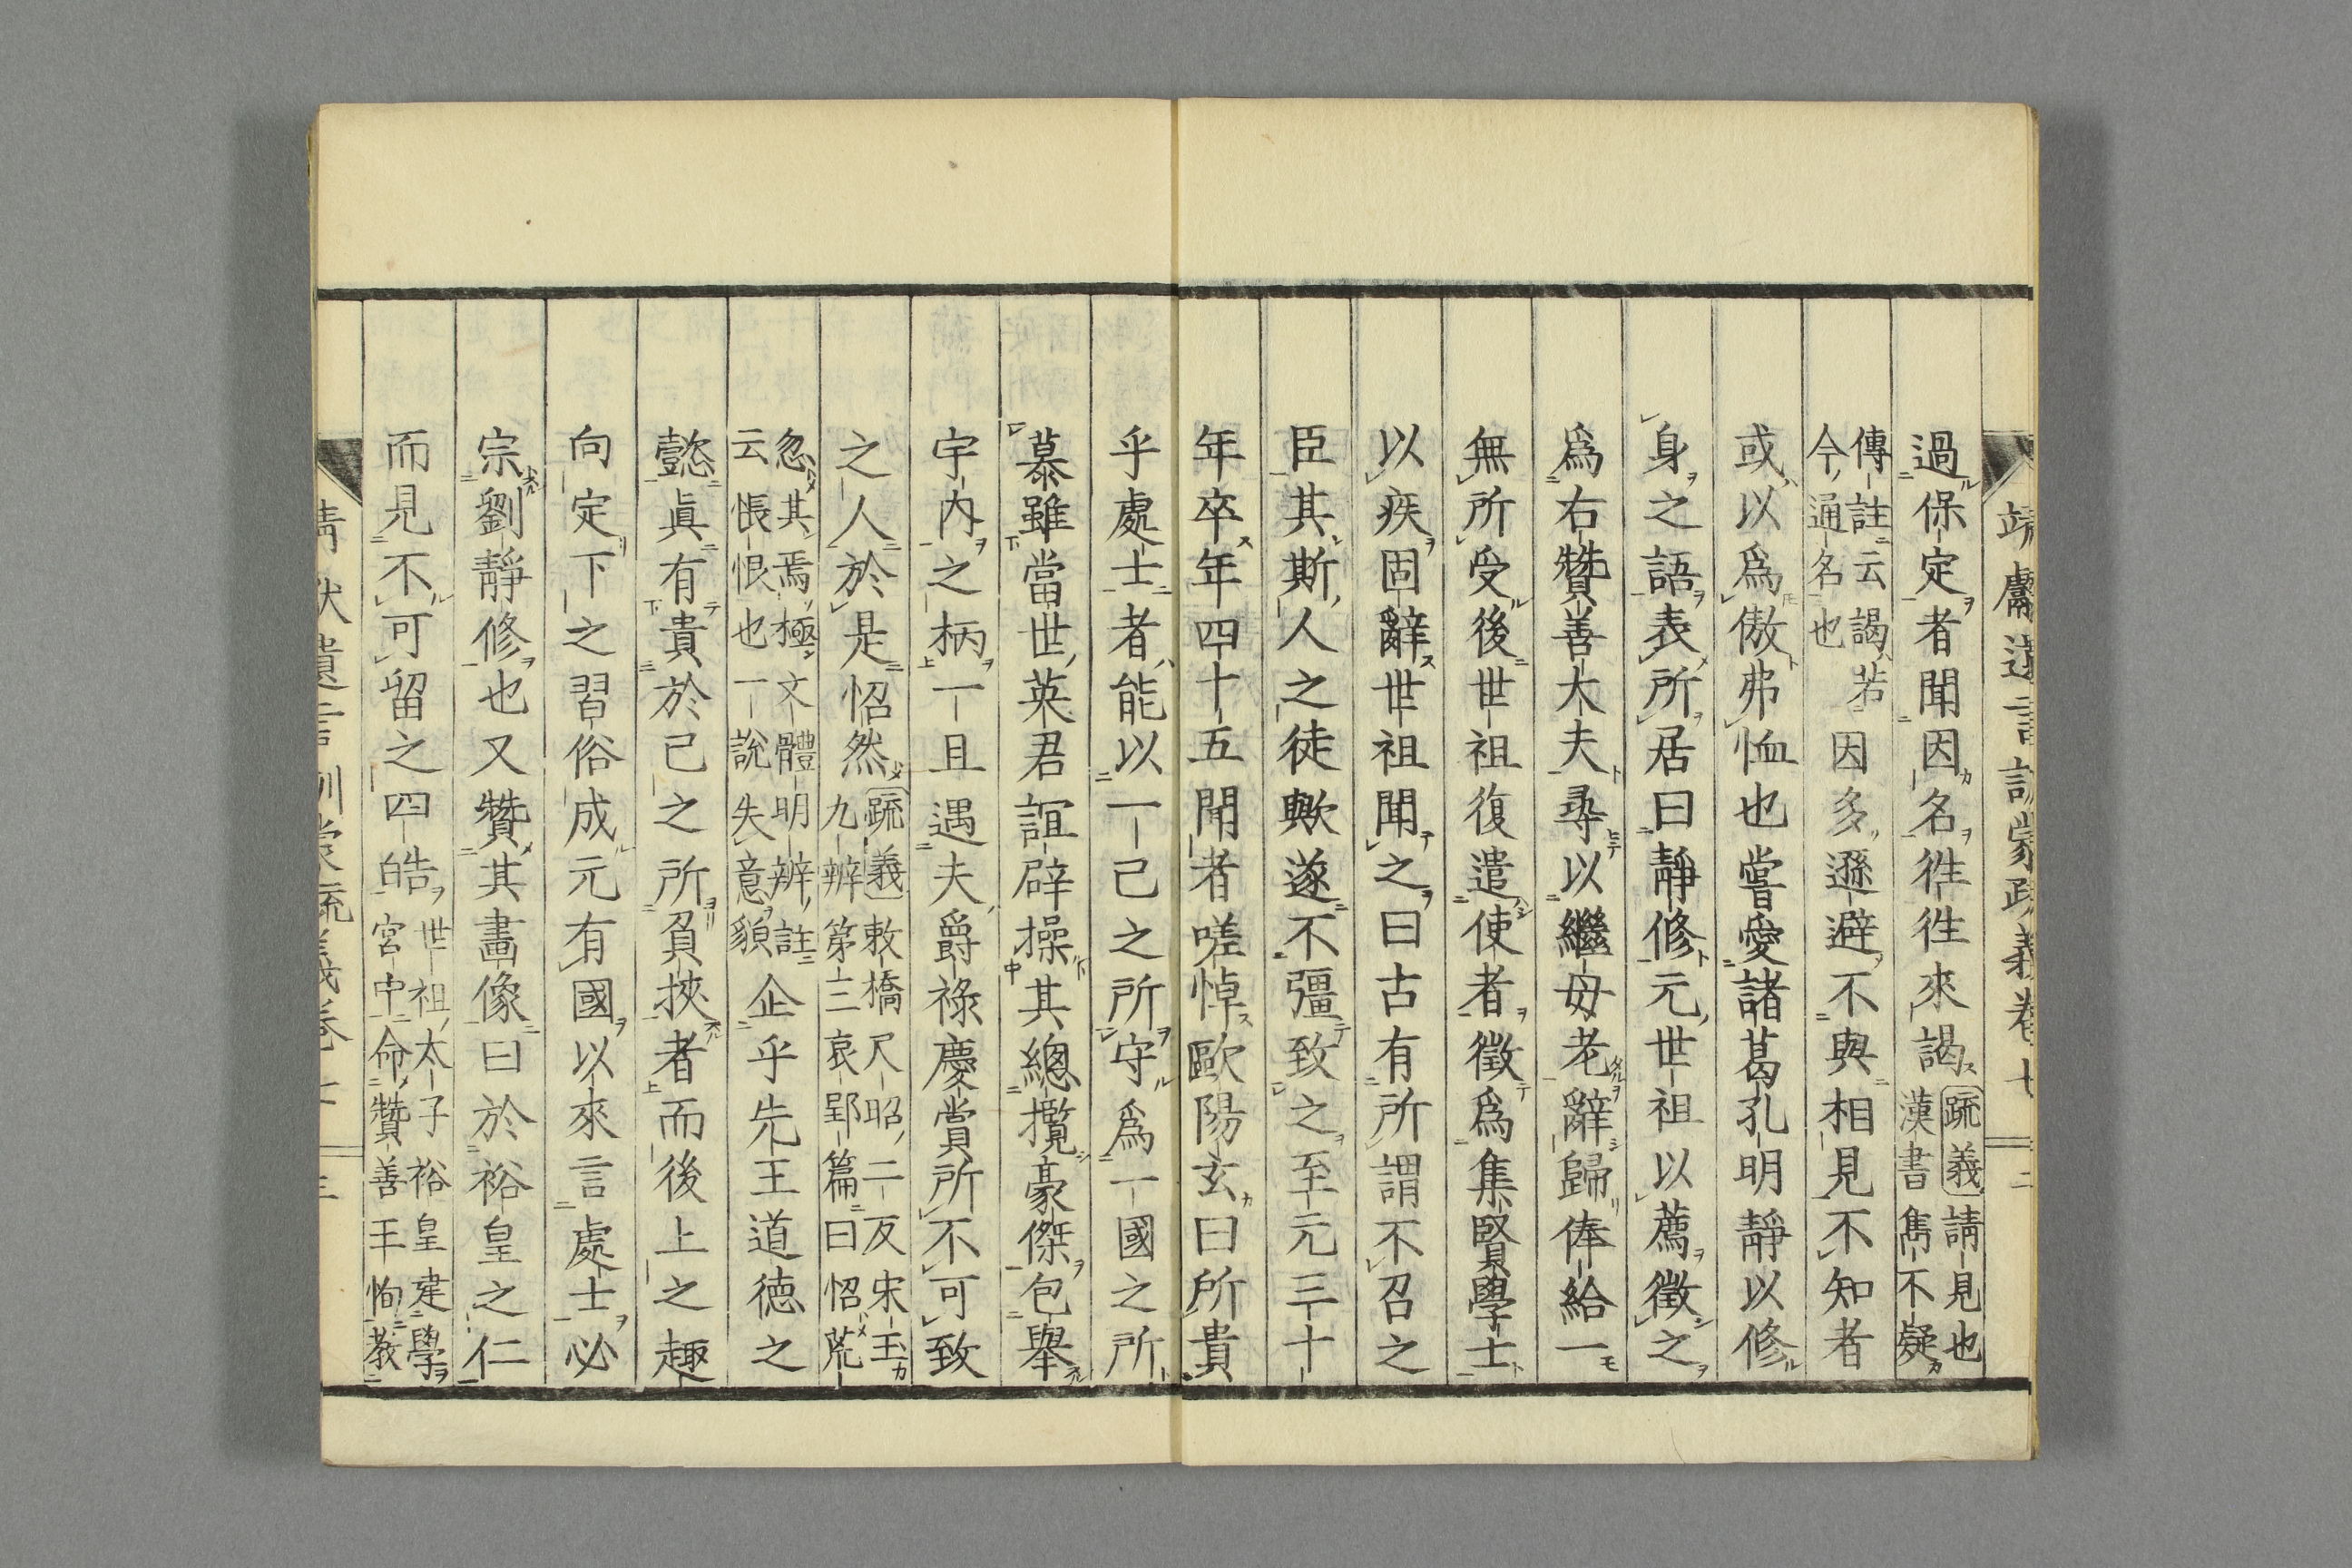 靖獻遺言訓蒙疏義卷七 二
過保定者聞因名徃徃來謁 疏義 請見也漢書雋不疑
傳註云謁若今通名也 因多遜避不與相見不知者
或以爲傲弗恤也嘗愛諸葛孔明靜以修
身之語表所居曰靜修元世祖以薦徵之
爲右贊善大夫尋以繼母老辭歸俸給一
無所受後世祖復遣使者徵爲集賢學士
以疾固辭世祖聞之曰古有所謂不召之
臣其斯人之徒歟遂不彊致之至元三十
年卒年四十五聞者嗟悼歐陽玄曰所貴
乎處士者能以一己之所守爲一國之所
慕雖當世英君誼辟操其總攬豪傑包舉
宇內之柄一且遇夫爵祿慶賞所不可致
之人於是怊然 疏義 敕橋尺昭二反宋玉九辨第三哀郢篇曰怊荒
忽其焉極文體明辨註云悵恨也一說失意貌 企乎先王道德之
懿眞有貴於己之所負挾者而後上之趣
向定下之習俗成元有國以來言處士必
宗劉靜修也又贊其畫像曰於裕皇之仁
而見不可留之四皓 世祖太子裕皇建學宮中命贊善王恂教
靖獻遺言訓蒙疏義卷七 三